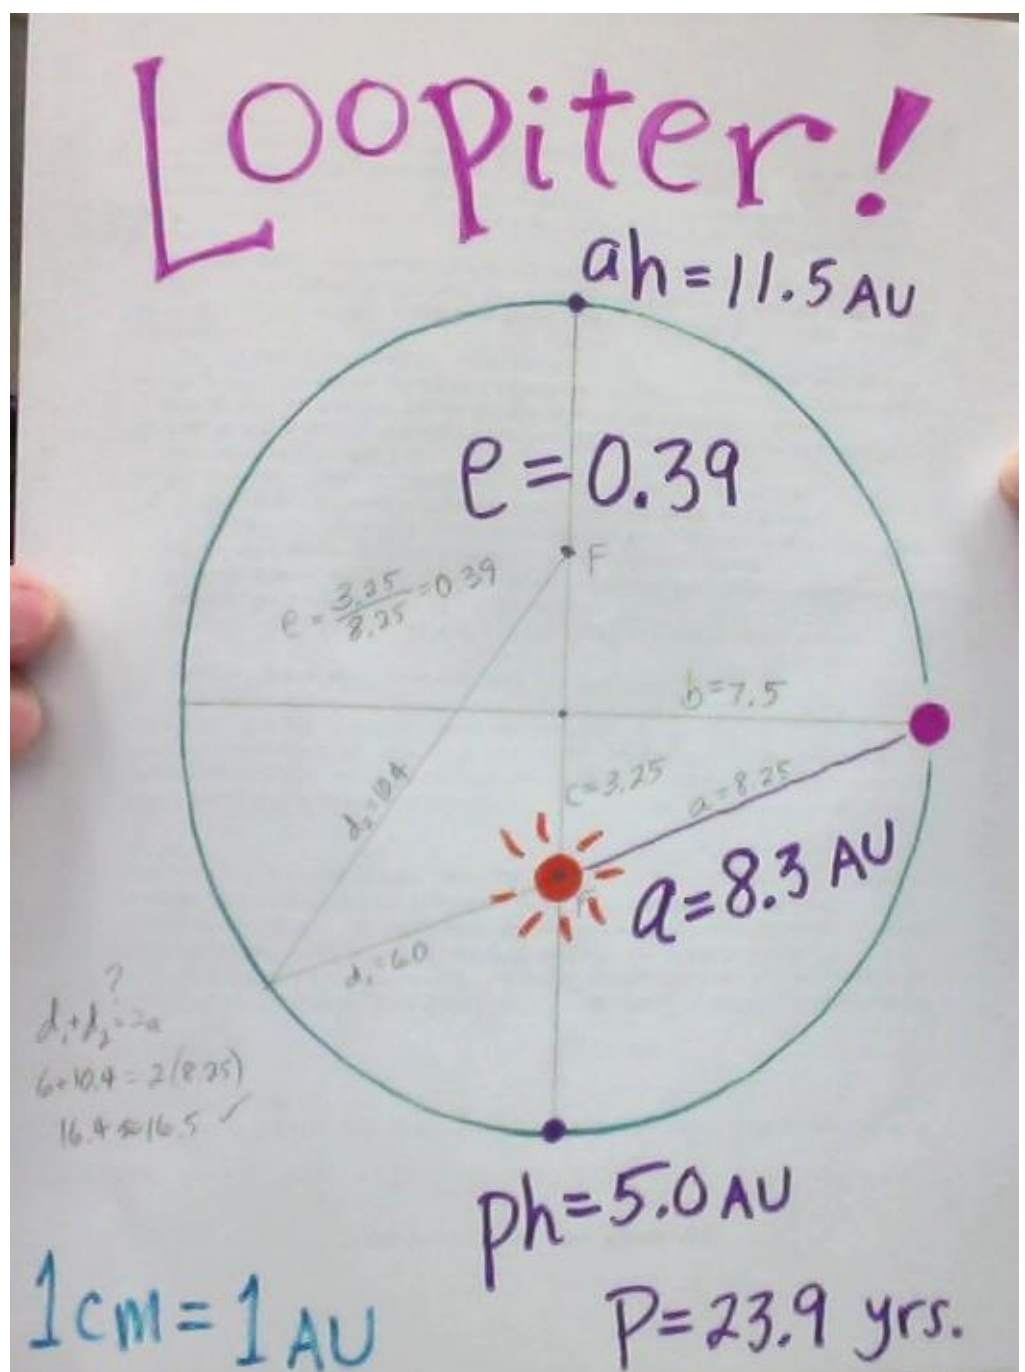 Loopiter!
ah = 11.5 AU
e = 0.39
F
e = 3.25/8.25 = 0.39
b = 7.5
d₂ = 10.4
c = 3.25
a = 8.25
a = 8.3 AU
d₁ = 6.0
?
d₁ + d₂ = 2a
6 + 10.4 = 2(8.25)
16.4 ≈ 16.5 ✓
ph = 5.0 AU
1cm = 1 AU
P = 23.9 yrs.